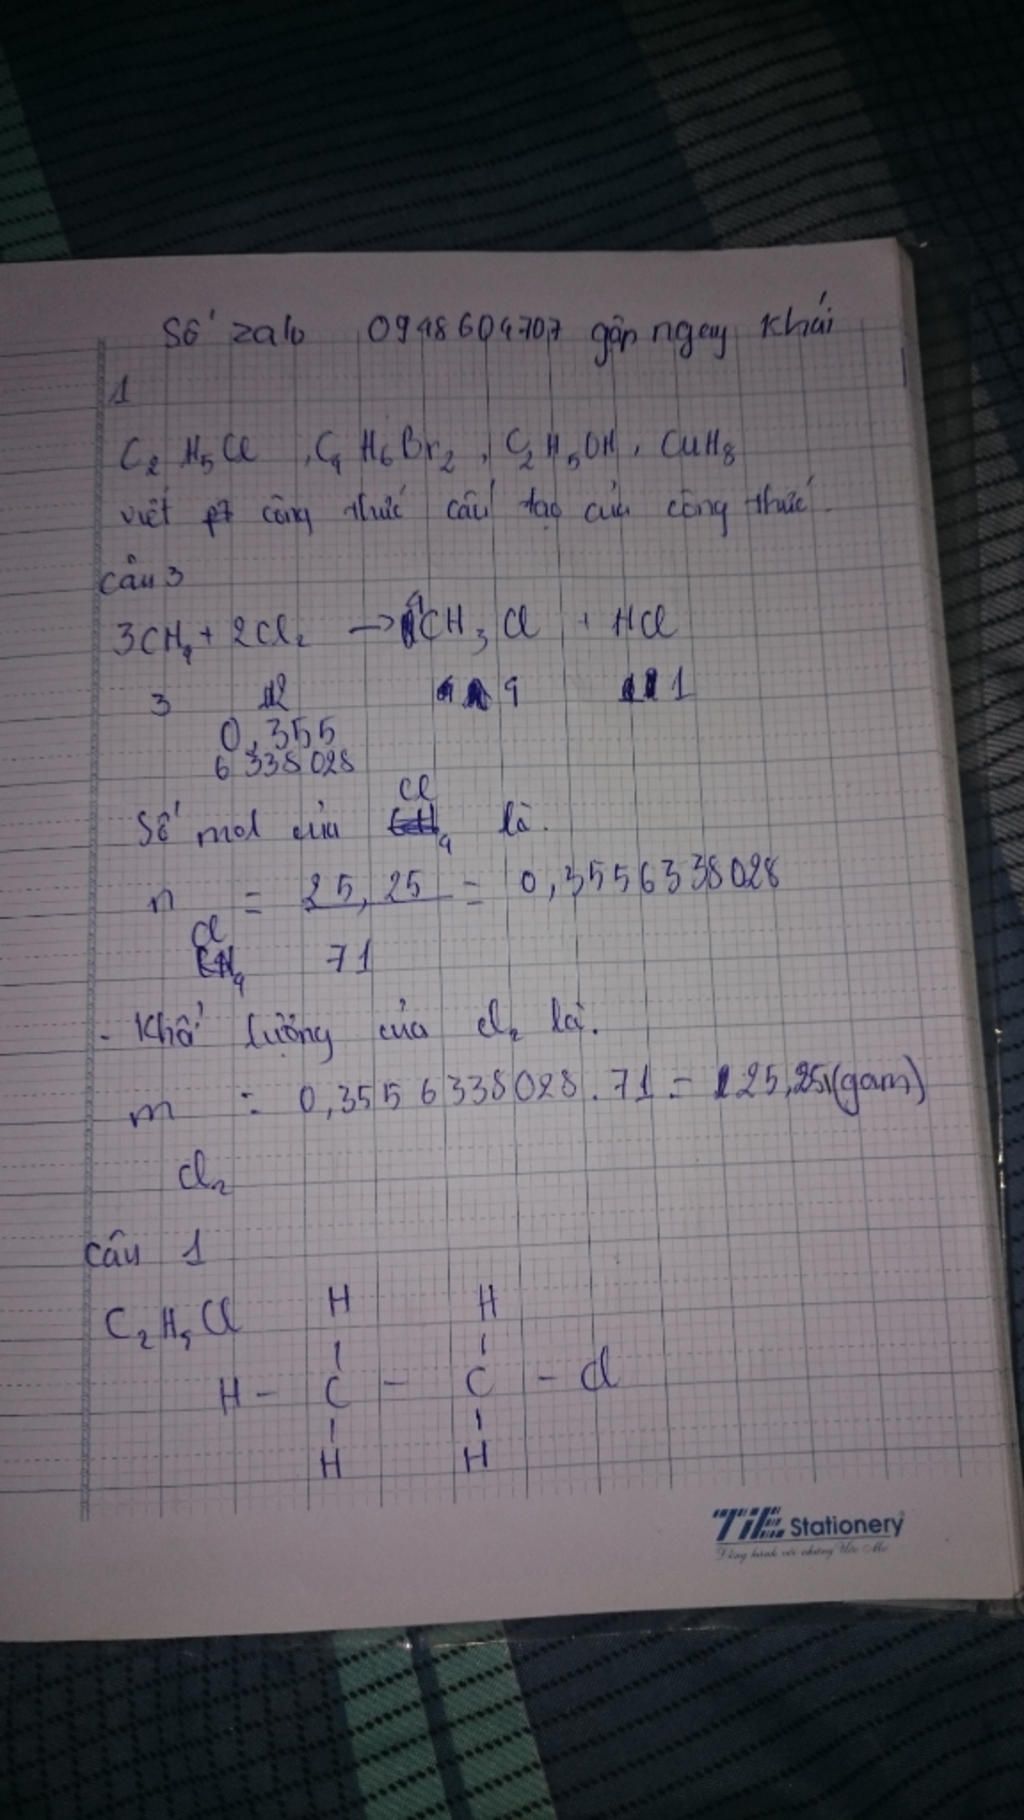 Số zalo 0948604707 gần ngay khái
1
C2 H5 Cl , C4 H6 Br2 , C2 H5 OH , C4H8
viết pt công thức cấu tạo của công thức
câu 3
3CH4 + 2Cl2 → 4CH3 Cl + HCl
3 2 4 1
0,355
6338028
Cl
Số mol của là.
n = 25,25 = 0,3556338028
Cl 71
- Khối lượng của cl2 là.
m = 0,3556338028 . 71 = 25,25 (gam)
cl2
câu 1
C2 H5 Cl H H
H - C - C - cl
H H
TiE Stationery